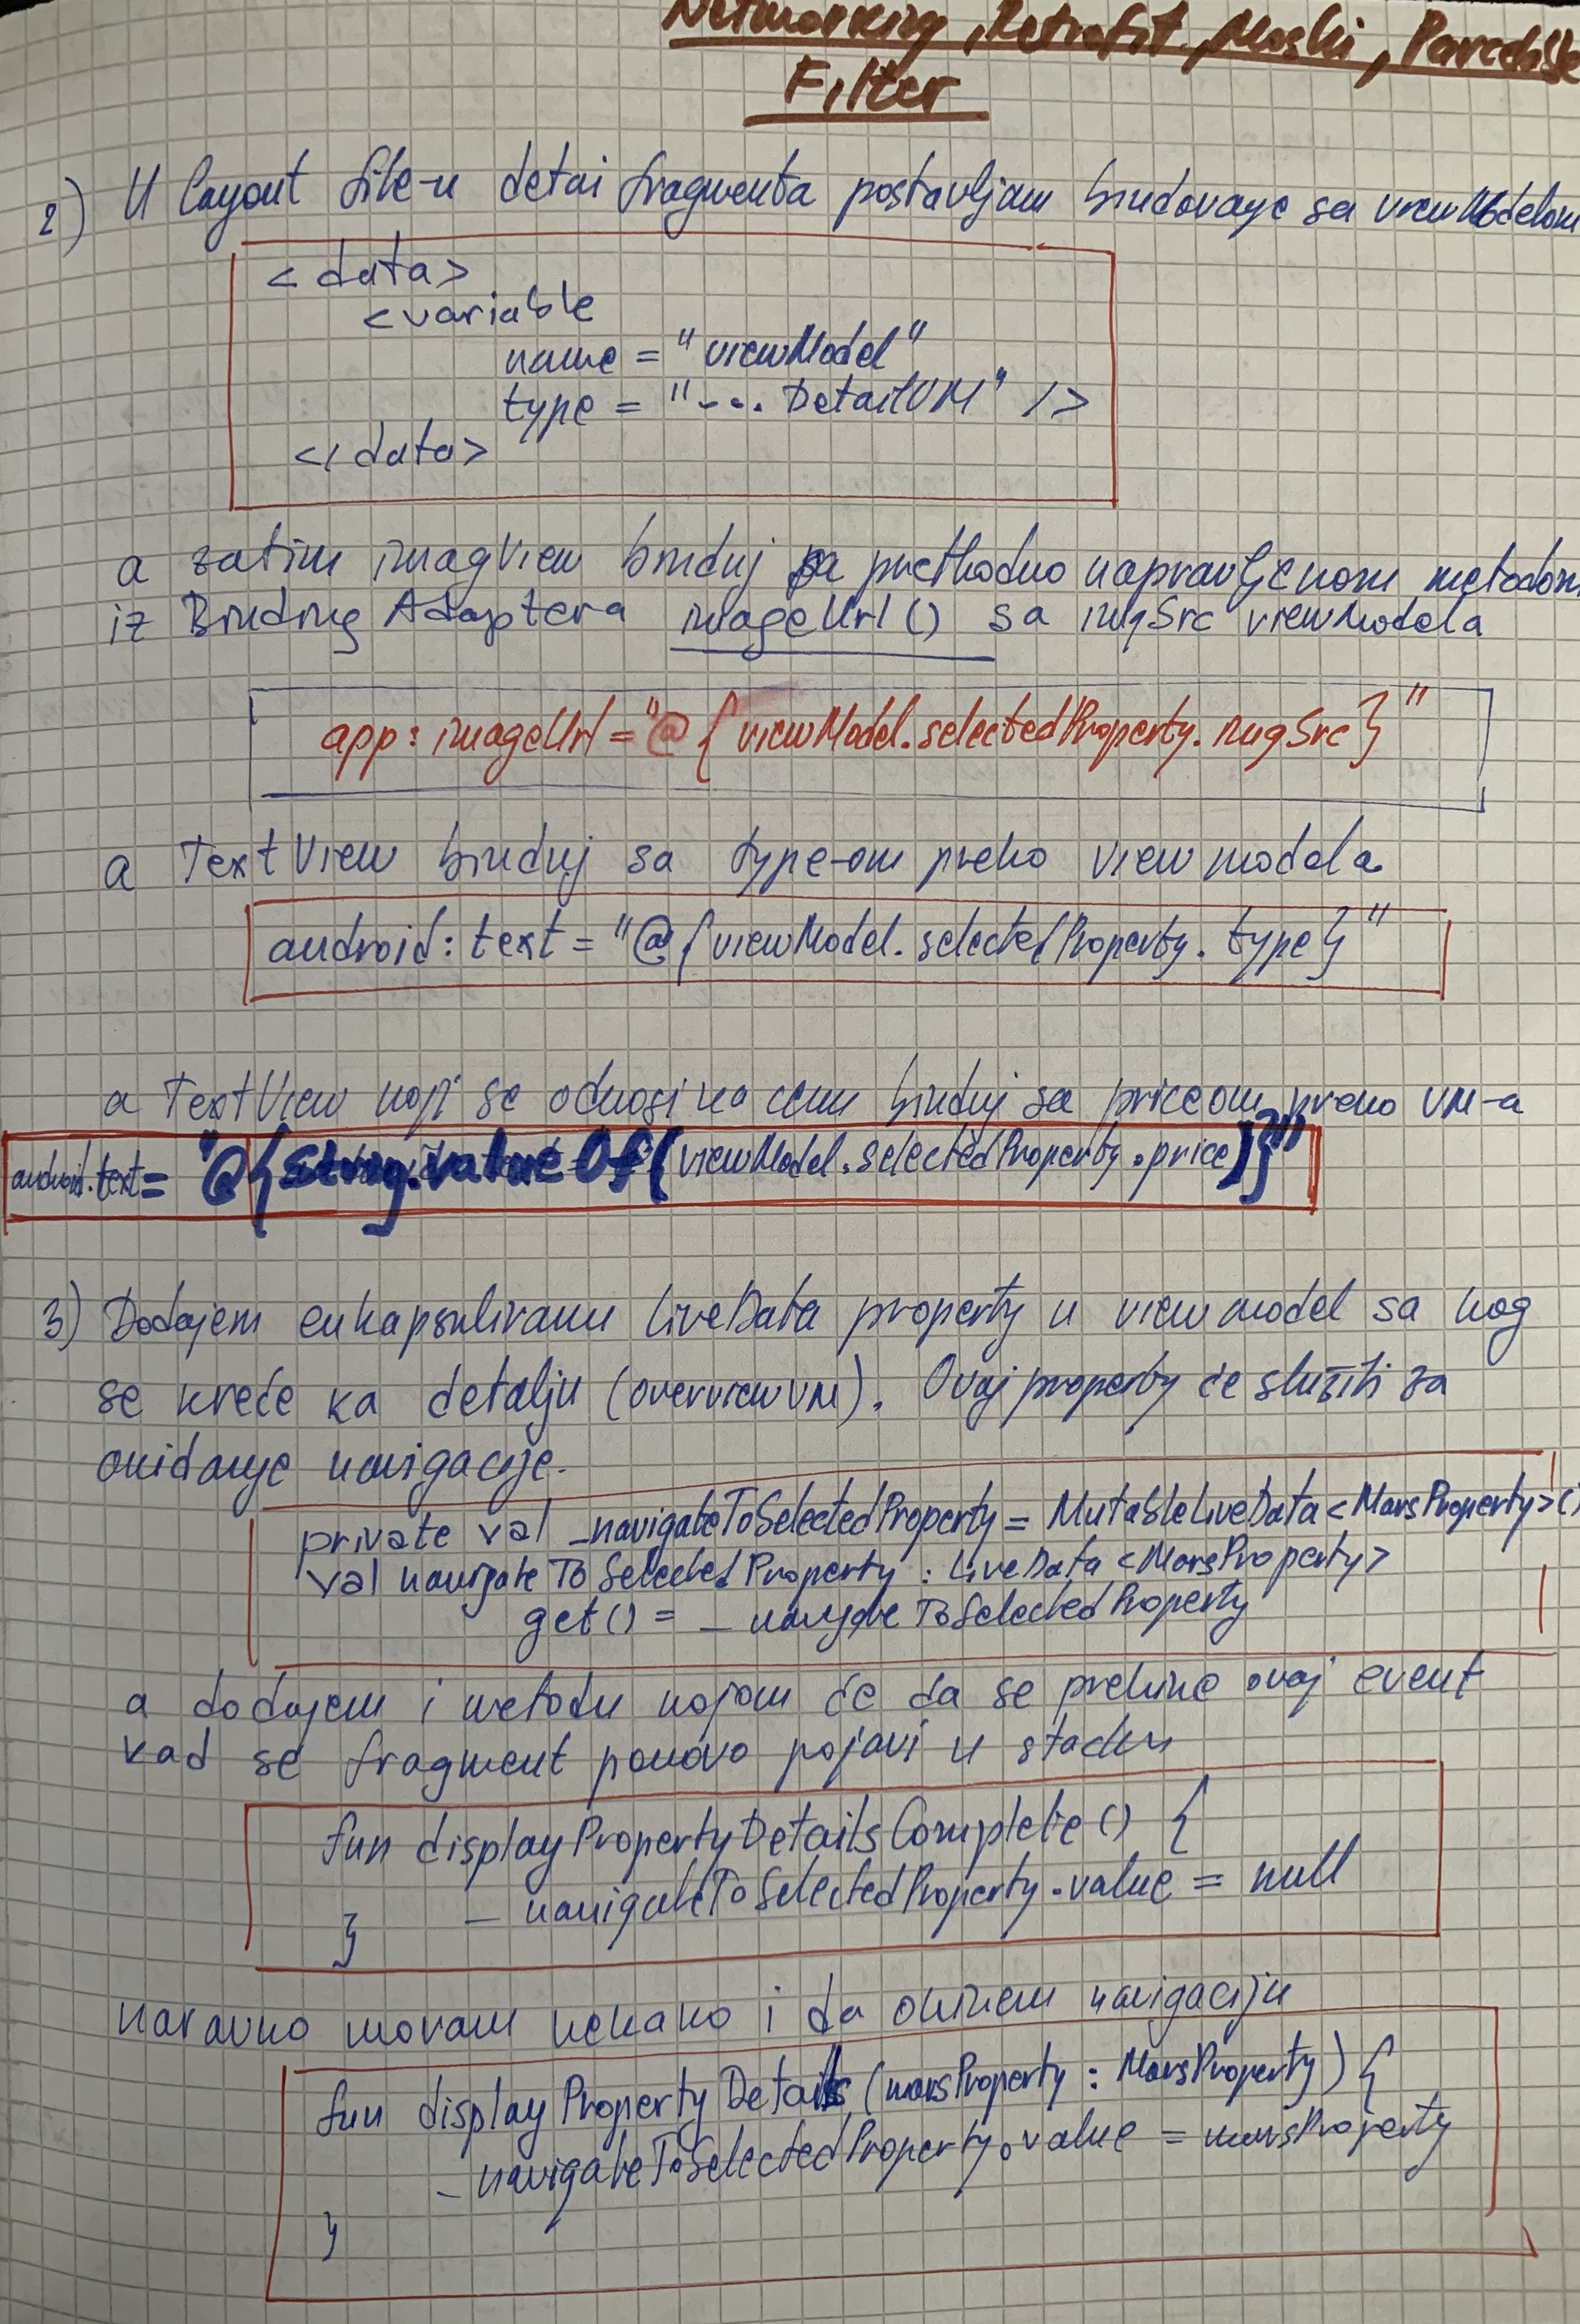 Networking, Retrofit, Moshi, Parcelable
Filter
2) U layout file-u detai fragmenta postavljam bindovanje sa viewModelom
<data>
<variable
name = "viewModel"
type = "... DetailVM" />
</data>
a zatim imagView binduj sa prethodno napravljenom metodom
iz Binding Adaptera imageUrl() sa imgSrc viewModela
app:imageUrl="@{viewModel.selectedProperty.imgSrc}"
a TextView binduj sa type-om preko view modela
android:text = "@{viewModel.selectedProperty.type}"
a TextView koji se odnosi na cenu binduj sa priceom preko VM-a
android.text= "@{String.valueOf(viewModel.selectedProperty.price)}"
3) Dodajem enkapsuliranu LiveData property u viewmodel sa kog
se kreće ka detalju (overviewVM). Ovaj property će služiti za
okidanje navigacije.
private val _navigateToSelectedProperty = MutableLiveData<MarsProperty>()
val navigateToSelectedProperty : LiveData<MarsProperty>
get() = _navigateToSelectedProperty
a dodajem i metodu kojom će da se prekine ovaj event
kad se fragment ponovo pojavi u stacku
fun displayPropertyDetailsComplete() {
_navigateToSelectedProperty.value = null
}
naravno moram nekako i da okinem navigaciju
fun displayPropertyDetails (marsProperty : MarsProperty) {
_navigateToSelectedProperty.value = marsProperty
}